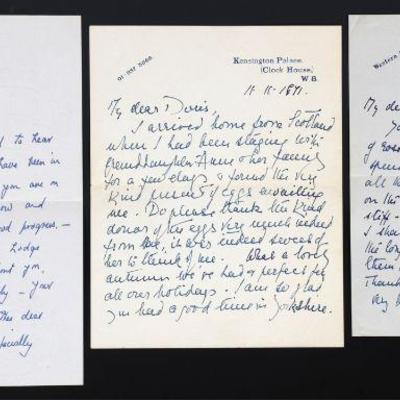 d to hear
have been in
you are on
ow and
ood progress. —
Lodge
ant you,
ly — your
this dear
specially
01-937 5066
Kensington Palace,
(Clock House)
W. 8.
My dear Doris,
I arrived home from Scotland
when I had been staying with
granddaughter Anne & her family
for a few days & found the very
kind present of eggs awaiting
me. Do please thank the kind
donor of the eggs very much indeed
from me, it was indeed sweet of
her to think of me. What a lovely
autumn we've had & perfect for
all our holidays. I am so glad
you had a good time in Yorkshire.
Western
My de
Yo
of Ros
spen
all th
on the
stiff -
I sha
the lon
them
Thank
my